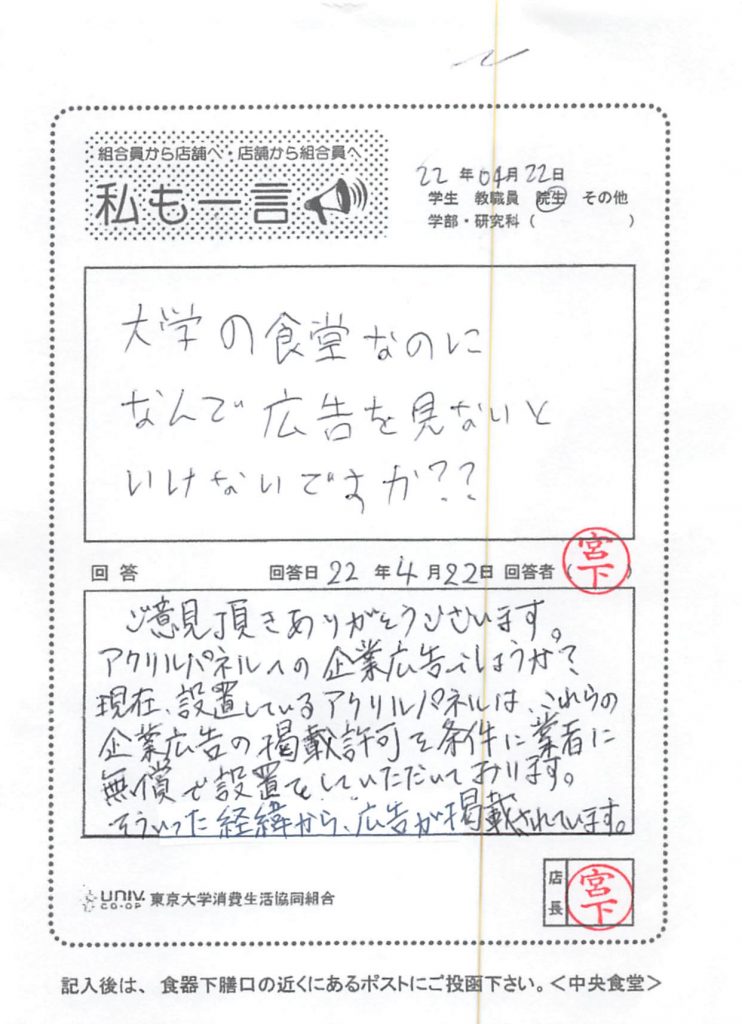 組合員から店舗へ・店舗から組合員へ
私も一言
22年04月22日
学生 教職員 院生 その他
学部・研究科（ ）
大学の食堂なのに
なんで広告を見ないと
いけないですか??
回答 回答日 22年4月22日 回答者（宮下）
ご意見頂きありがとうございます。
アクリルパネルへの企業広告でしょうか?
現在、設置しているアクリルパネルは、これらの
企業広告の掲載許可を条件に業者に
無償で設置をしていただいております。
そういった経緯から、広告が掲載されています。
UNIV. CO-OP 東京大学消費生活協同組合
店長 宮下
記入後は、食器下膳口の近くにあるポストにご投函下さい。＜中央食堂＞